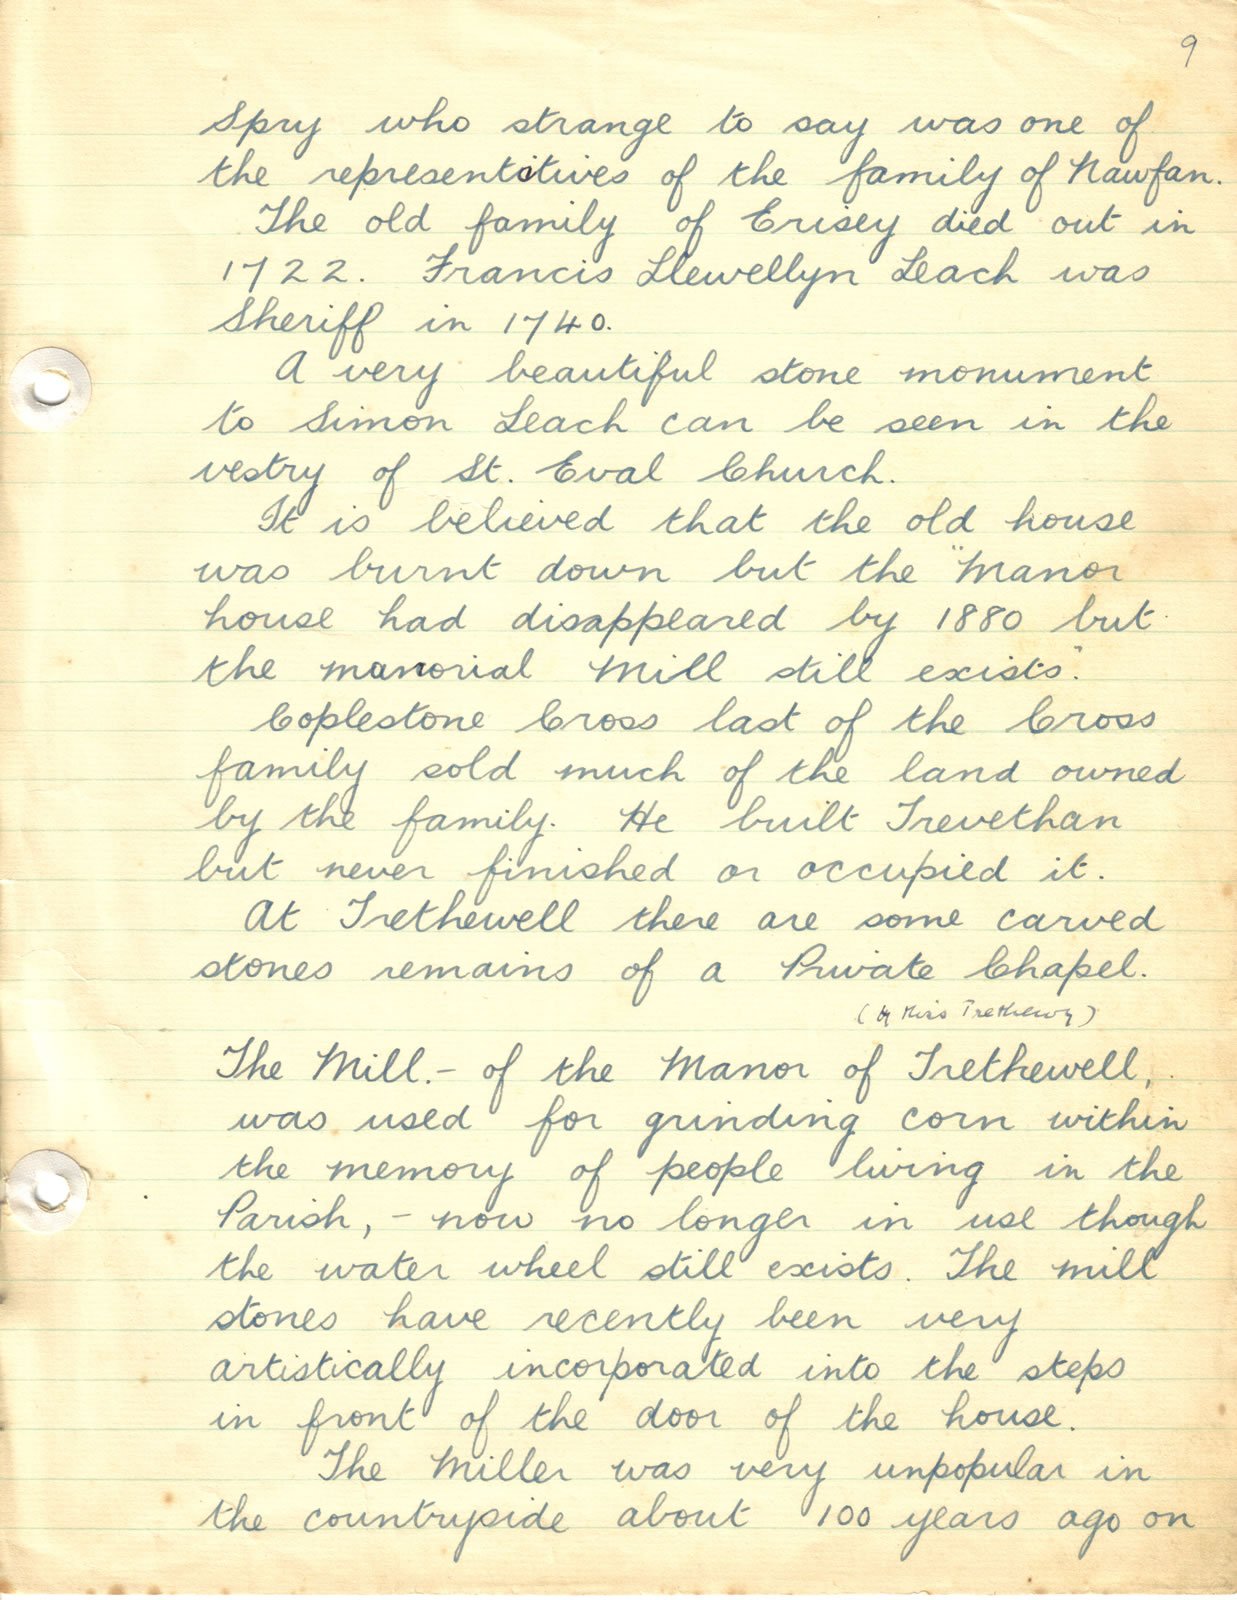 9
Spry who strange to say was one of
the representitives of the family of Nawfan.
The old family of Erisey died out in
1722. Francis Llewellyn Leach was
Sheriff in 1740.
A very beautiful stone monument
to Simon Leach can be seen in the
vestry of St. Eval Church.
It is believed that the old house
was burnt down but the "Manor
house had disappeared by 1880 but
the manorial Mill still exists".
Coplestone Cross last of the Cross
family sold much of the land owned
by the family. He built Trevethan
but never finished or occupied it.
At Trethewell there are some carved
stones remains of a Private Chapel.
(by Miss Trethewy)
The Mill.- of the Manor of Trethewell,
was used for grinding corn within
the memory of people living in the
Parish, - now no longer in use though
the water wheel still exists. The mill
stones have recently been very
artistically incorporated into the steps
in front of the door of the house.
The Miller was very unpopular in
the countryside about 100 years ago on